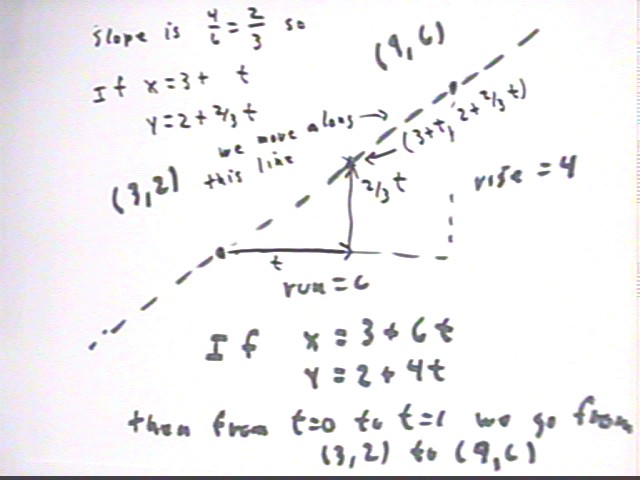 slope is 4/6 = 2/3 so
If x = 3 + t
y = 2 + 2/3 t
we move along →
this line
(9, 6)
(3+t, 2+2/3 t)
(3, 2)
2/3 t
rise = 4
t
run = 6
If x = 3 + 6t
y = 2 + 4t
then from t=0 to t=1 we go from
(3, 2) to (9, 6)